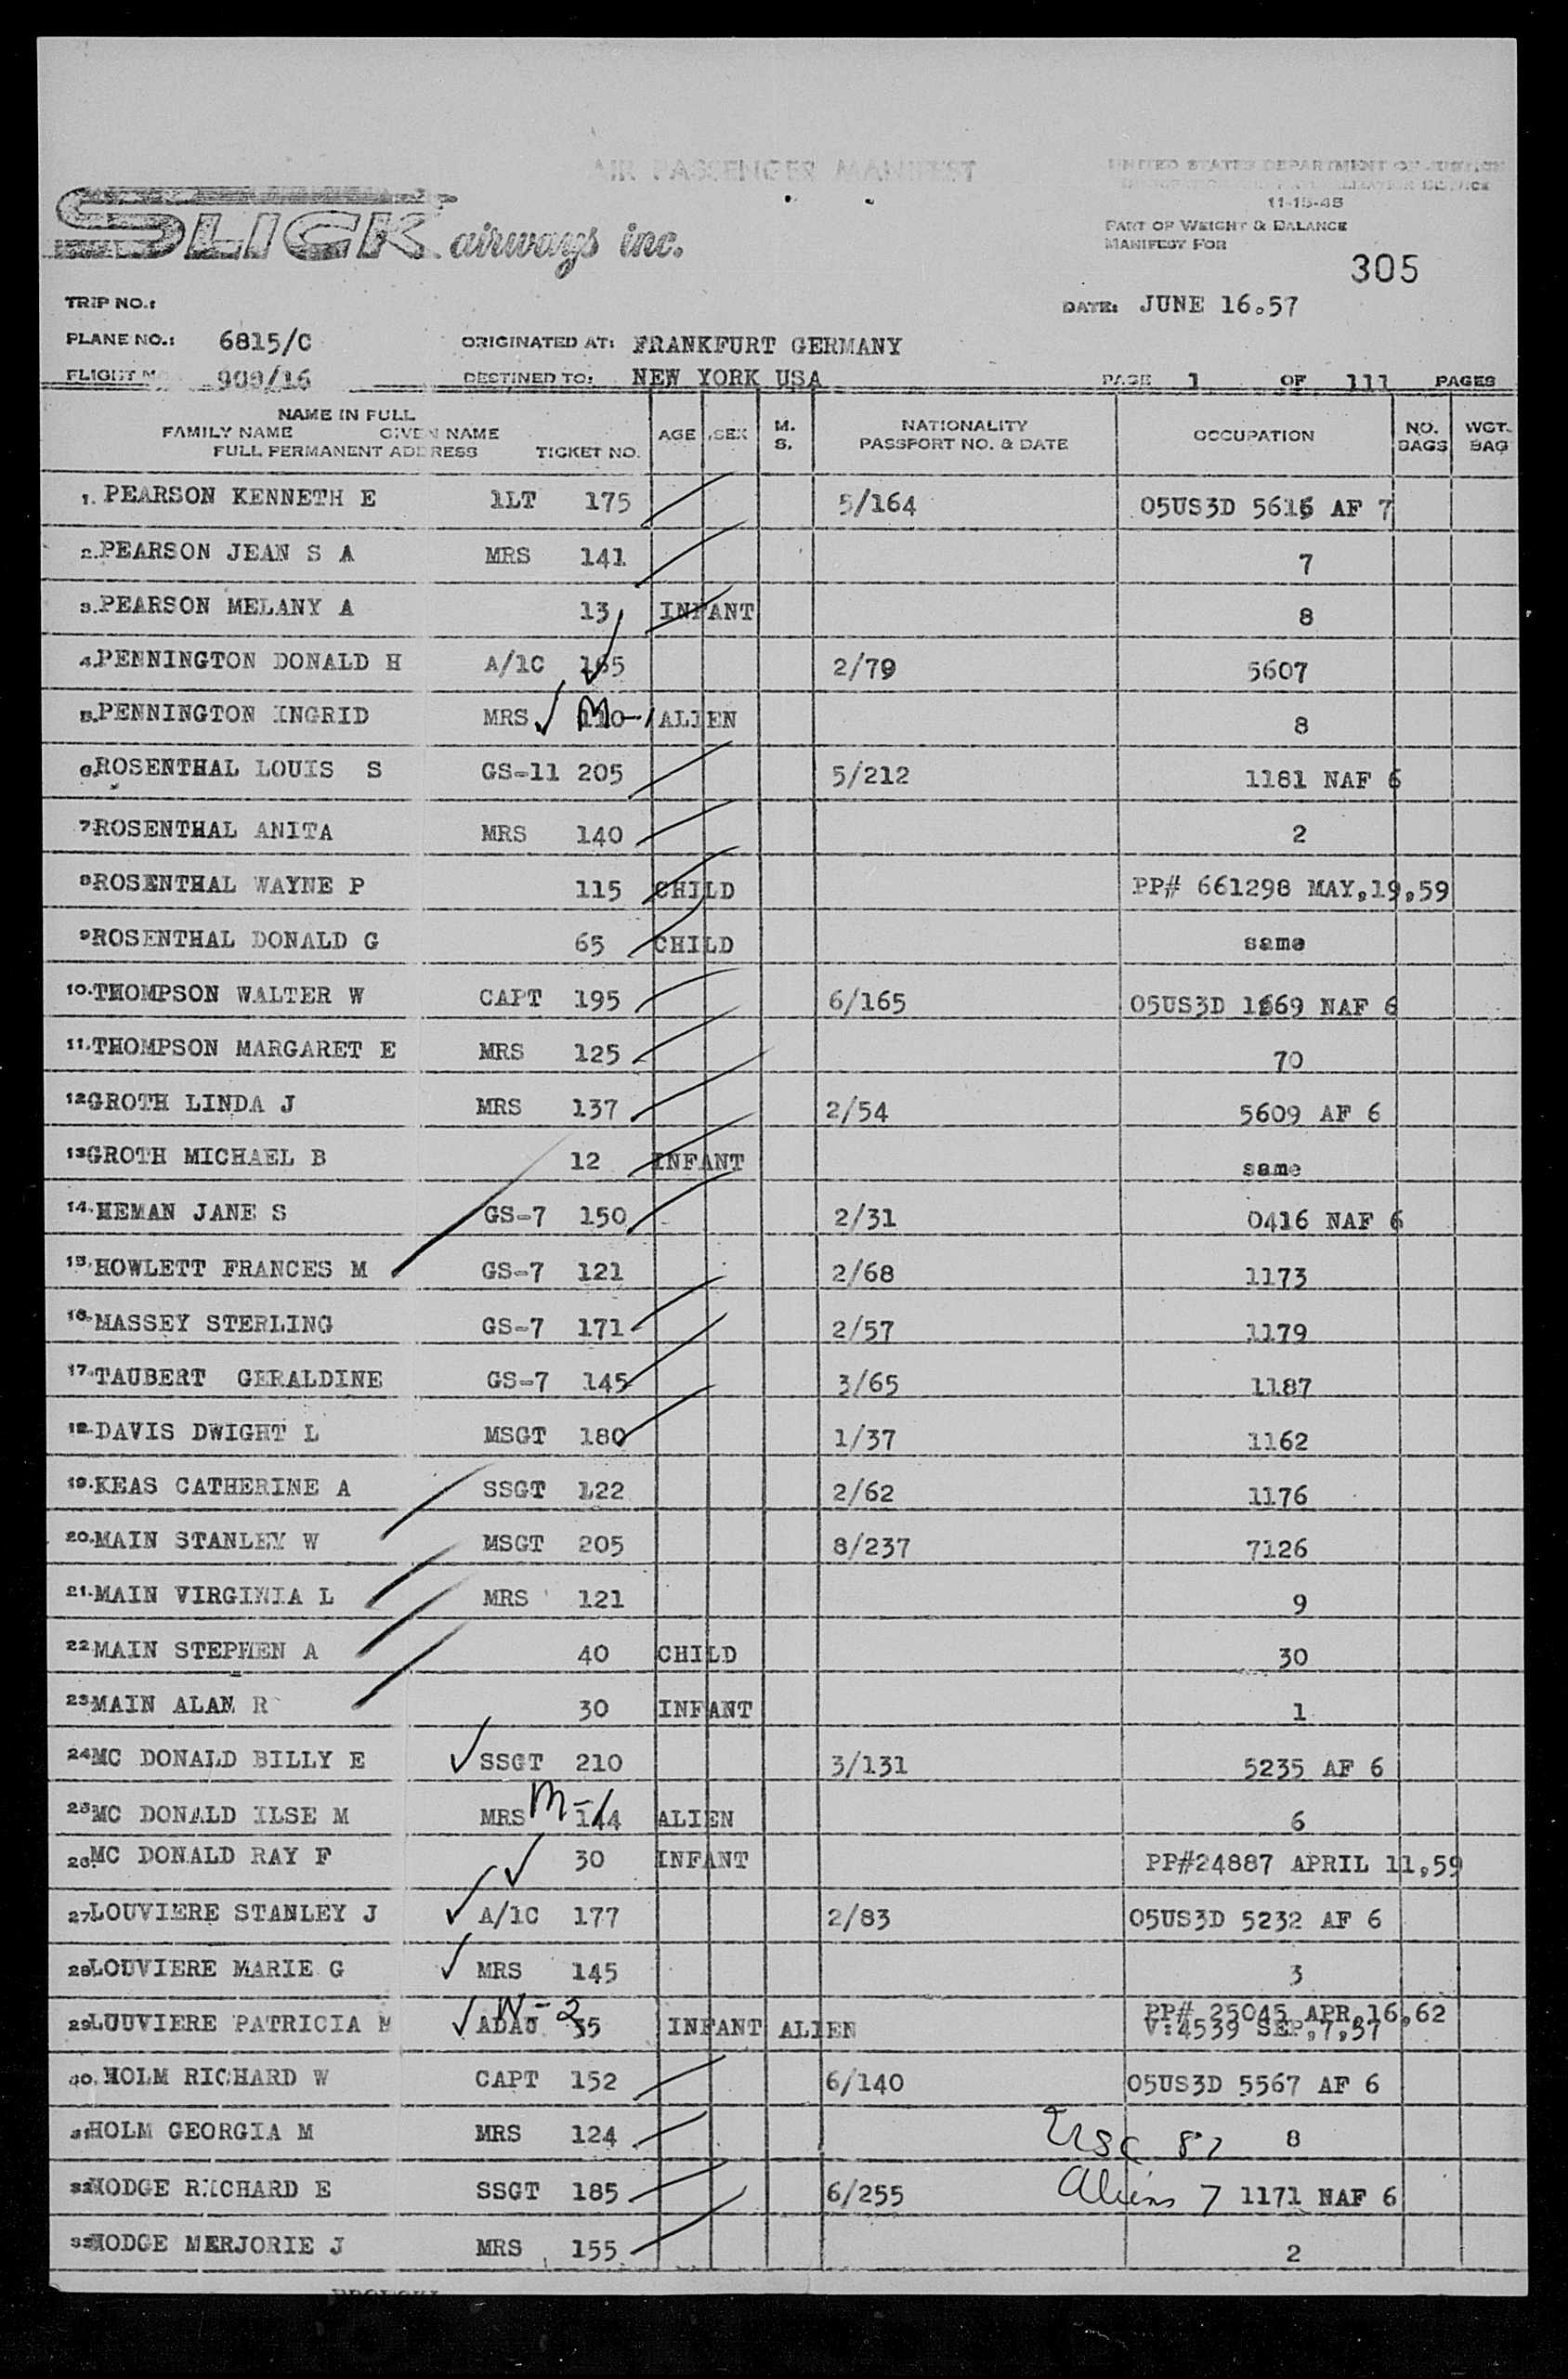 AIR PASSENGER MANIFEST
UNITED STATES DEPARTMENT OF JUSTICE
11-15-45
SLICK airways inc.
PART OF WEIGHT & BALANCE
MANIFEST FOR
305
TRIP NO.:
DATE: JUNE 16.57
PLANE NO.: 6815/C ORIGINATED AT: FRANKFURT GERMANY
FLIGHT 909/16 DESTINED TO: NEW YORK USA PAGE 1 OF 111 PAGES
NAME IN FULL
FAMILY NAME GIVEN NAME
FULL PERMANENT ADDRESS TICKET NO. AGE SEX M. S. NATIONALITY PASSPORT NO. & DATE OCCUPATION NO. BAGS WGT. BAG
1. PEARSON KENNETH E 1LT 175 5/164 05US3D 5615 AF 7
2. PEARSON JEAN S A MRS 141 7
3. PEARSON MELANY A 13 INFANT 8
4. PENNINGTON DONALD H A/1C 165 2/79 5607
5. PENNINGTON INGRID MRS 110 M-1 ALIEN 8
6. ROSENTHAL LOUIS S GS-11 205 5/212 1181 NAF 6
7 ROSENTHAL ANITA MRS 140 2
8 ROSENTHAL WAYNE P 115 CHILD PP# 661298 MAY,19,59
9 ROSENTHAL DONALD G 65 CHILD same
10. THOMPSON WALTER W CAPT 195 6/165 05US3D 1669 NAF 6
11. THOMPSON MARGARET E MRS 125 70
12 GROTH LINDA J MRS 137 2/54 5609 AF 6
13 GROTH MICHAEL B 12 INFANT same
14. HEMAN JANE S GS-7 150 2/31 0416 NAF 6
15. HOWLETT FRANCES M GS-7 121 2/68 1173
16. MASSEY STERLING GS-7 171 2/57 1179
17. TAUBERT GERALDINE GS-7 145 3/65 1187
18. DAVIS DWIGHT L MSGT 180 1/37 1162
19. KEAS CATHERINE A SSGT 122 2/62 1176
20. MAIN STANLEY W MSGT 205 8/237 7126
21. MAIN VIRGINIA L MRS 121 9
22 MAIN STEPHEN A 40 CHILD 30
23 MAIN ALAN R 30 INFANT 1
24 MC DONALD BILLY E SSGT 210 3/131 5235 AF 6
25 MC DONALD ILSE M MRS M-1 144 ALIEN 6
26. MC DONALD RAY F 30 INFANT PP#24887 APRIL 11,59
27 LOUVIERE STANLEY J A/1C 177 2/83 05US3D 5232 AF 6
28 LOUVIERE MARIE G MRS 145 3
29 LOUVIERE PATRICIA M W-2 INFANT ALIEN PP# 25045 APR,16,62
V:4539 SEP,7,57
30. HOLM RICHARD W CAPT 152 6/140 05US3D 5567 AF 6
31 HOLM GEORGIA M MRS 124 8
USC 87
32 HODGE RICHARD E SSGT 185 6/255 Aliens 7 1171 NAF 6
33 HODGE MERJORIE J MRS 155 2